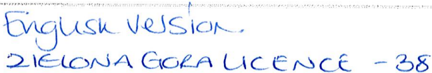 English version.
ZIELONA GORA LICENCE - 38